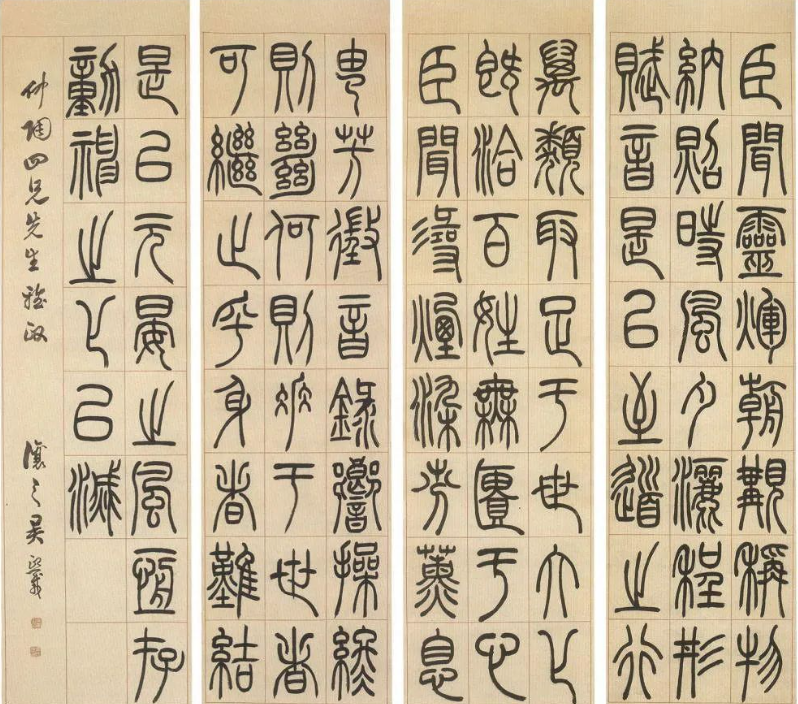 臣聞靈煇朝覯稱物
納照時風夕灑程形
賦音是以至道之行
萬類取足于世大化
既洽百姓無匱于心
臣聞尋煙染芬薰息
芳徵音錄響操終
則絕何則垂于世者
可繼止乎身者難結
是以元晏之風恆存
動神之化以滅
仲陶四兄先生雅政
讓之吳熙載